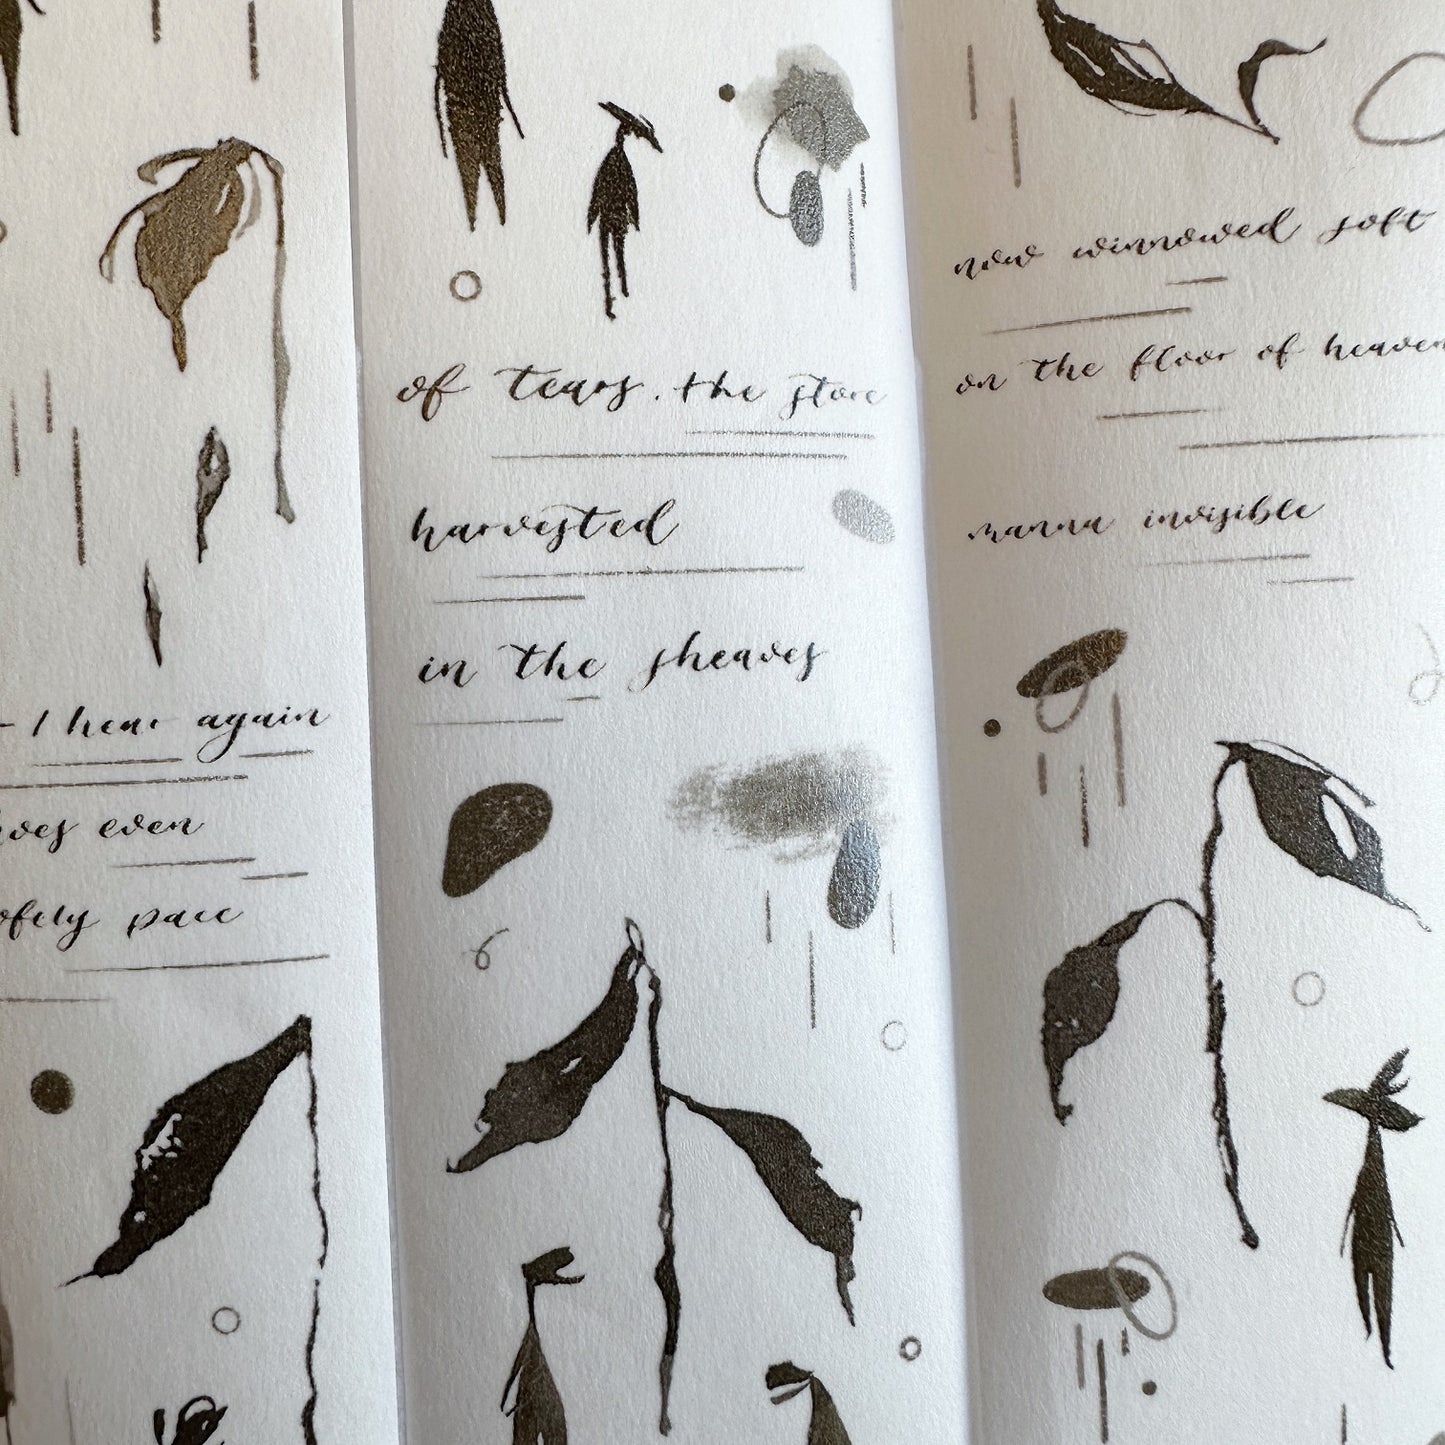 - I hear again
even
pace
of tears. the store
harvested
in the sheaves
now winnowed soft
on the floor of heaven
manna invisible